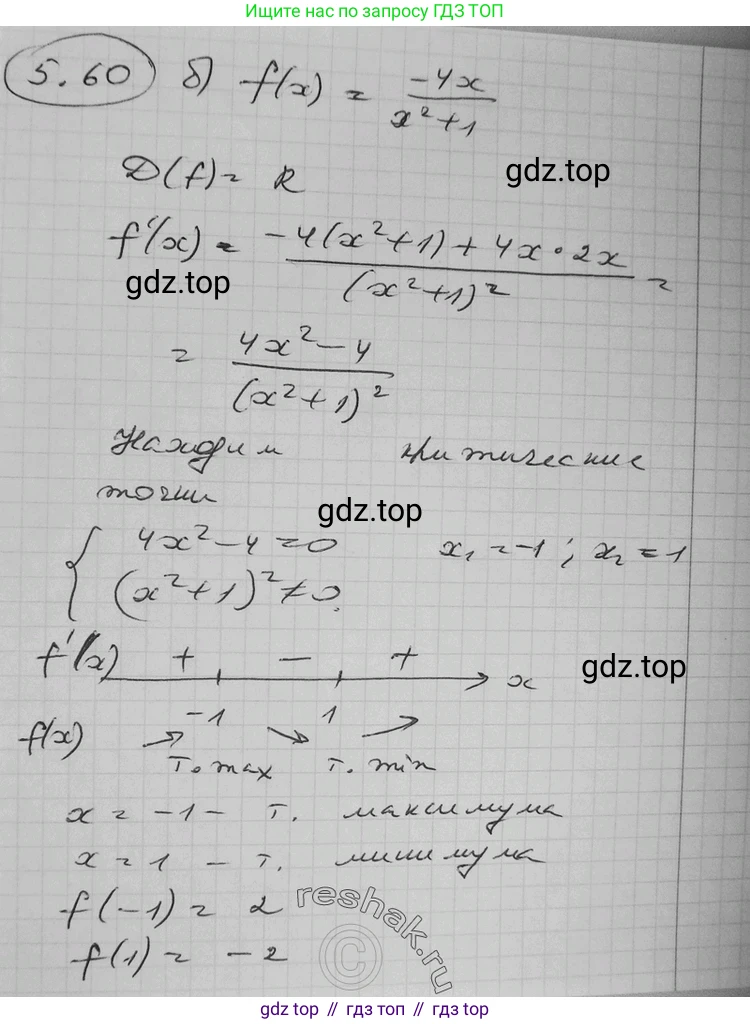 Ищите нас по запросу ГДЗ ТОП
5.60 б) f(x) = -4x / (x²+1)
D(f) = R
gdz.top
f'(x) = (-4(x²+1) + 4x · 2x) / (x²+1)² =
gdz.top
= (4x² - 4) / (x²+1)²
Находим критические
точки
gdz.top
{ 4x² - 4 = 0 x₁ = -1; x₂ = 1
(x²+1)² ≠ 0.
f'(x) + - + x
gdz.top
-1 1
f(x) ↗ ↘ ↗
т. max т. min
x = -1 - т. максимума
x = 1 - т. минимума
f(-1) = 2
f(1) = -2
reshak.ru
©
gdz.top // гдз топ // gdz.top